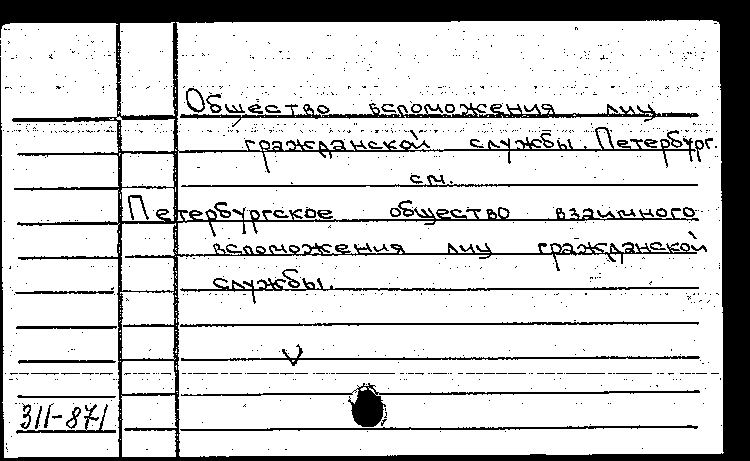 Общество вспоможения лиц
гражданской службы. Петербург.
см.
Петербургское общество взаимного
вспоможения лиц гражданской
службы.
V
311-871